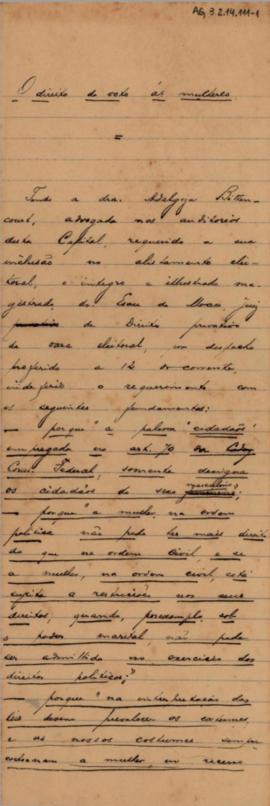 AG 3.2.14.111-1
O direito de voto ás mulheres.
=
Tendo a dra. Adalgija Bitten-
court, advogada nos auditorios
desta Capital, requerido a sua
inclusão no alistamento elei-
toral, o integro e illustrado ma-
gistrado, dr. juiz
de Direito privativo
da vara eleitoral, por despacho
proferido a 12 do corrente,
indeferiu o requerimento com
os seguintes fundamentos:
— porque "a palavra "cidadãos"
empregada no art. 70 da
Const. Federal, somente designa
os cidadãos do sexo masculino;
— porque "a mulher, na ordem
politica não pode ter mais direitos
do que na ordem civil, e se
a mulher, na ordem civil, está
sujeita a restricções nos seus
direitos, quando, por exemplo, sob
o poder marital, não pode
ser admittida no exercicio dos
direitos politicos;"
— porque "na interpretação das
leis devem prevalecer os costumes,
e os nossos costumes sempre
a mulher, no recesso